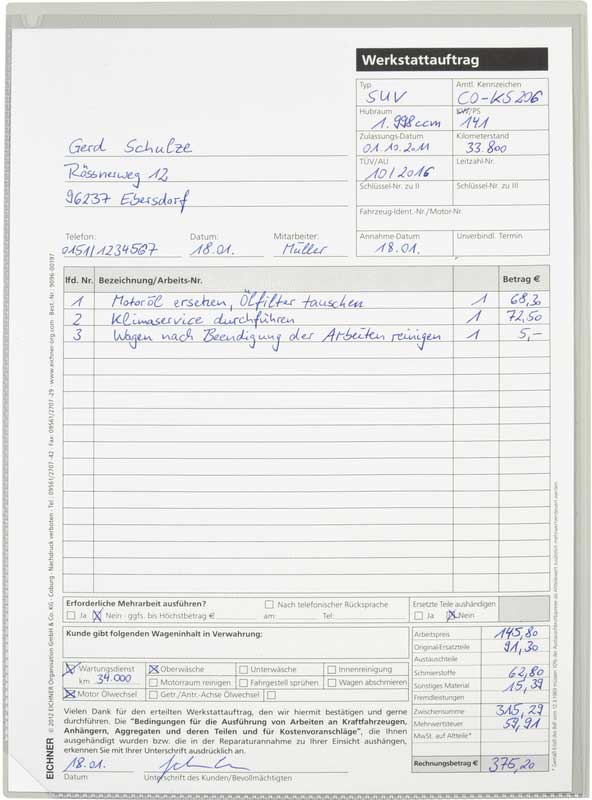 Werkstattauftrag
Typ
SUV
Amtl. Kennzeichen
CO-KS206
Hubraum
1.998ccm
KW/PS
141
Zulassungs-Datum
01.10.2011
Kilometerstand
33.800
TÜV/AU
10/2016
Leitzahl-Nr.
Schlüssel-Nr. zu II
Schlüssel-Nr. zu III
Fahrzeug-Ident.-Nr./Motor-Nr.
Annahme-Datum
18.01.
Unverbindl. Termin
Gerd Schulze
Rössnerweg 12
96237 Ebersdorf
Telefon: Datum: Mitarbeiter:
0151/1234567 18.01. Müller
lfd. Nr. Bezeichnung/Arbeits-Nr. Betrag €
1 Motoröl ersetzen, Ölfilter tauschen 1 68,30
2 Klimaservice durchführen 1 72,50
3 Wagen nach Beendigung der Arbeiten reinigen 1 5,-
Erforderliche Mehrarbeit ausführen?
Nach telefonischer Rücksprache
Ja Nein - ggfs. bis Höchstbetrag € am: Tel:
Ersetzte Teile aushändigen
Ja Nein
Kunde gibt folgenden Wageninhalt in Verwahrung:
Wartungsdienst Oberwäsche Unterwäsche Innenreinigung
km 34.000 Motorraum reinigen Fahrgestell sprühen Wagen abschmieren
Motor Ölwechsel Getr./Antr.-Achse Ölwechsel
Arbeitspreis 145,80
Original-Ersatzteile 91,30
Austauschteile
Schmierstoffe 62,80
Sonstiges Material 15,39
Fremdleistungen
Zwischensumme 315,29
Mehrwertsteuer 59,91
MwSt. auf Altteile*
Rechnungsbetrag € 375,20
Vielen Dank für den erteilten Werkstattauftrag, den wir hiermit bestätigen und gerne
durchführen. Die "Bedingungen für die Ausführung von Arbeiten an Kraftfahrzeugen,
Anhängern, Aggregaten und deren Teilen und für Kostenvoranschläge", die Ihnen
ausgehändigt wurden bzw. die in der Reparaturannahme zu Ihrer Einsicht aushängen,
erkennen Sie mit Ihrer Unterschrift ausdrücklich an.
18.01.
Datum Unterschrift des Kunden/Bevollmächtigten
EICHNER © 2012 EICHNER Organisation GmbH & Co. KG · Coburg · Nachdruck verboten · Tel.: 09561/2707-42 · Fax: 09561/2707-29 · www.eichner-org.com · Best.-Nr.: 9096-00197